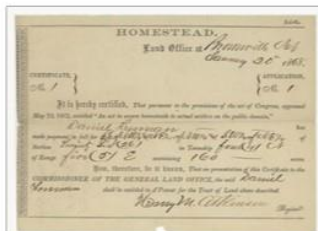 HOMESTEAD.
Land Office at Brownville Neb
January 20th 1868.
CERTIFICATE, No. 1
APPLICATION, No. 1
It is hereby certified, That pursuant to the provisions of the act of Congress, approved
May 20, 1862, entitled "An act to secure homesteads to actual settlers on the public domain,"
Daniel Freeman has
made payment in full for of
Section in Township four (4) N
of Range five (5) E containing 160 acres
Now, therefore, be it known, That on presentation of this Certificate to the
COMMISSIONER OF THE GENERAL LAND OFFICE, the said Daniel
Freeman shall be entitled to a Patent for the Tract of Land above described
Henry M. Atkinson
Register